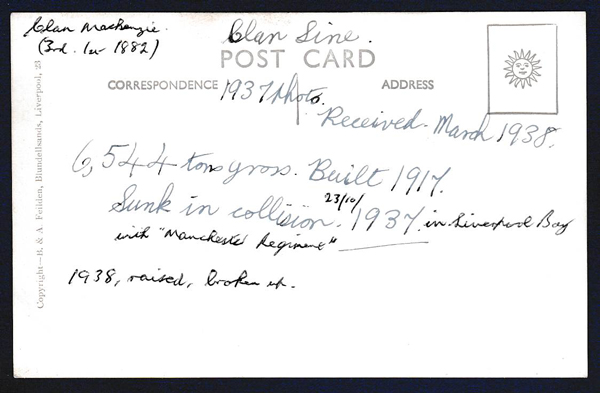 Clan MacKenzie.
(3rd. 1st 1882)
Clan Line.
POST CARD
CORRESPONDENCE
ADDRESS
1937 photo.
Received March 1938.
6,544 tons gross. Built 1917.
Sunk in collision. 23/10/1937 in Liverpool Bay
with "Manchester Regiment"
1938, raised, broken up.
Copyright—B. & A. Feilden, Blundellsands, Liverpool, 23